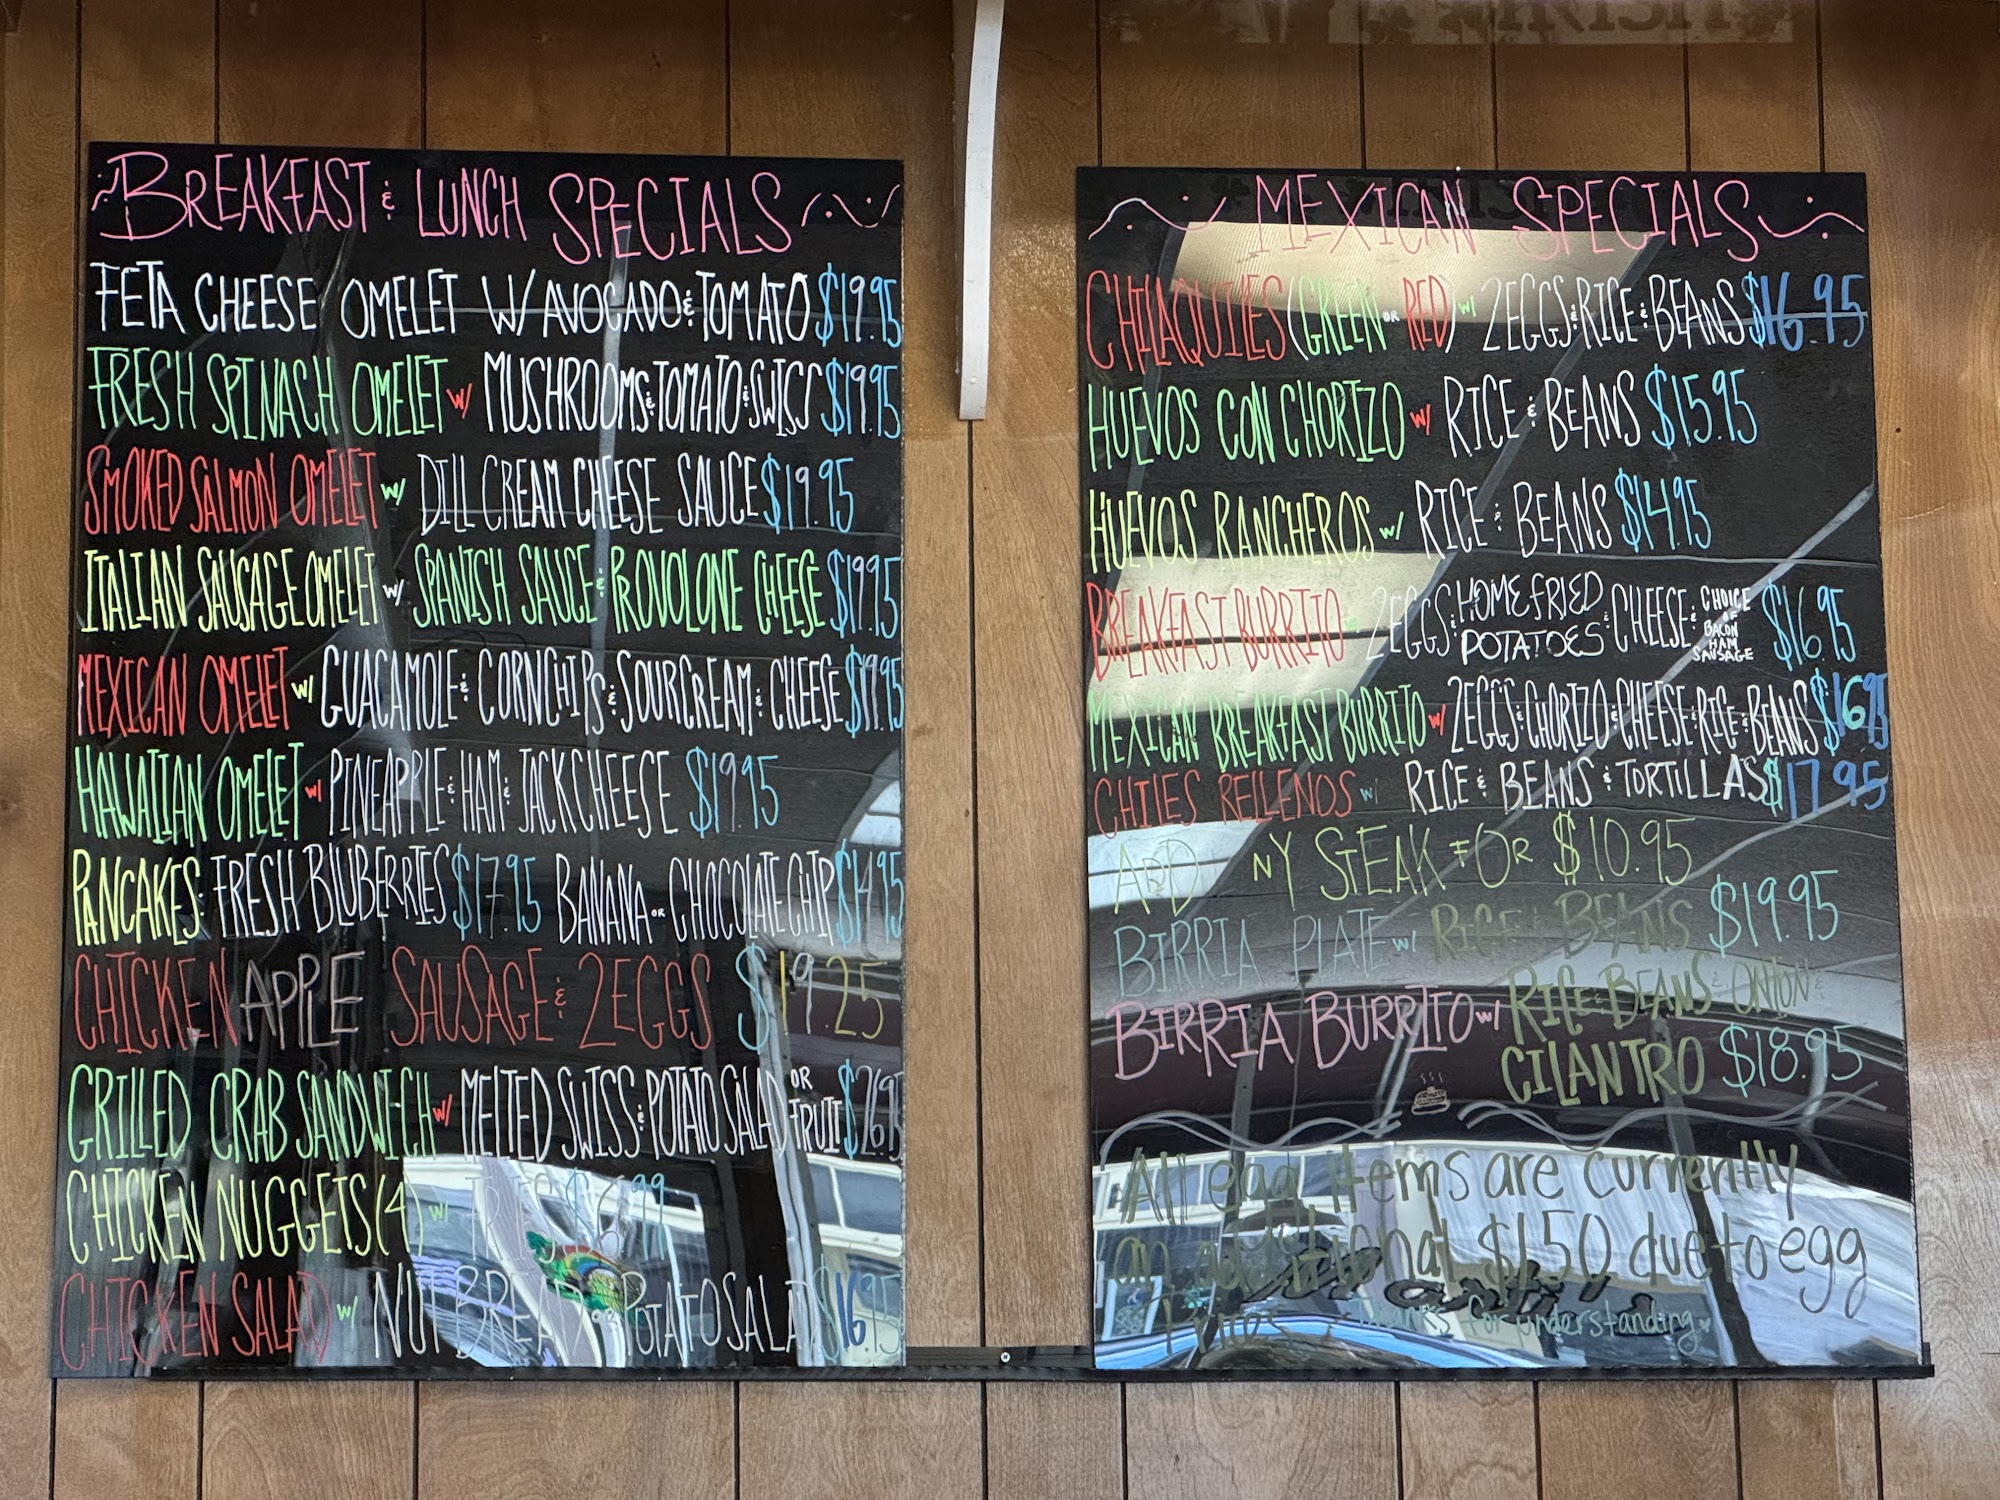 BREAKFAST & LUNCH SPECIALS
FETA CHEESE OMELET W/ AVOCADO & TOMATO $19.95
FRESH SPINACH OMELET W/ MUSHROOMS & TOMATO & SWISS $19.95
SMOKED SALMON OMELET W/ DILL CREAM CHEESE SAUCE $19.95
ITALIAN SAUSAGE OMELET W/ SPANISH SAUCE & PROVOLONE CHEESE $19.95
MEXICAN OMELET W/ GUACAMOLE & CORN CHIPS & SOUR CREAM & CHEESE $19.95
HAWAIIAN OMELET W/ PINEAPPLE & HAM & JACK CHEESE $19.95
PANCAKES: FRESH BLUBERRIES $17.95 BANANA OR CHOCOLATE CHIP $14.95
CHICKEN APPLE SAUSAGE & 2 EGGS $19.25
GRILLED CRAB SANDWICH W/ MELTED SWISS & POTATO SALAD OR FRUIT
CHICKEN NUGGETS (4) W/ FRIES $6.99
CHICKEN SALAD W/ NUT BREAD POTATO SALAD $16.95
MEXICAN SPECIALS
CHILAQUILES (GREEN OR RED) W/ 2 EGGS & RICE & BEANS $16.95
HUEVOS CON CHORIZO W/ RICE & BEANS $15.95
HUEVOS RANCHEROS W/ RICE & BEANS $14.95
BREAKFAST BURRITO 2 EGGS & HOME FRIED POTATOES & CHEESE & CHOICE OF BACON HAM SAUSAGE $16.95
MEXICAN BREAKFAST BURRITO W/ 2 EGGS & CHORIZO & CHEESE & RICE & BEANS $16.95
CHILES RELLENOS W/ RICE & BEANS & TORTILLAS $17.95
ADD NY STEAK FOR $10.95
BIRRIA PLATE W/ RICE & BEANS $19.95
BIRRIA BURRITO W/ RICE & BEANS & ONION &
CILANTRO $18.95
All egg items are currently
an additional $1.50 due to egg
Prices Thanks for understanding